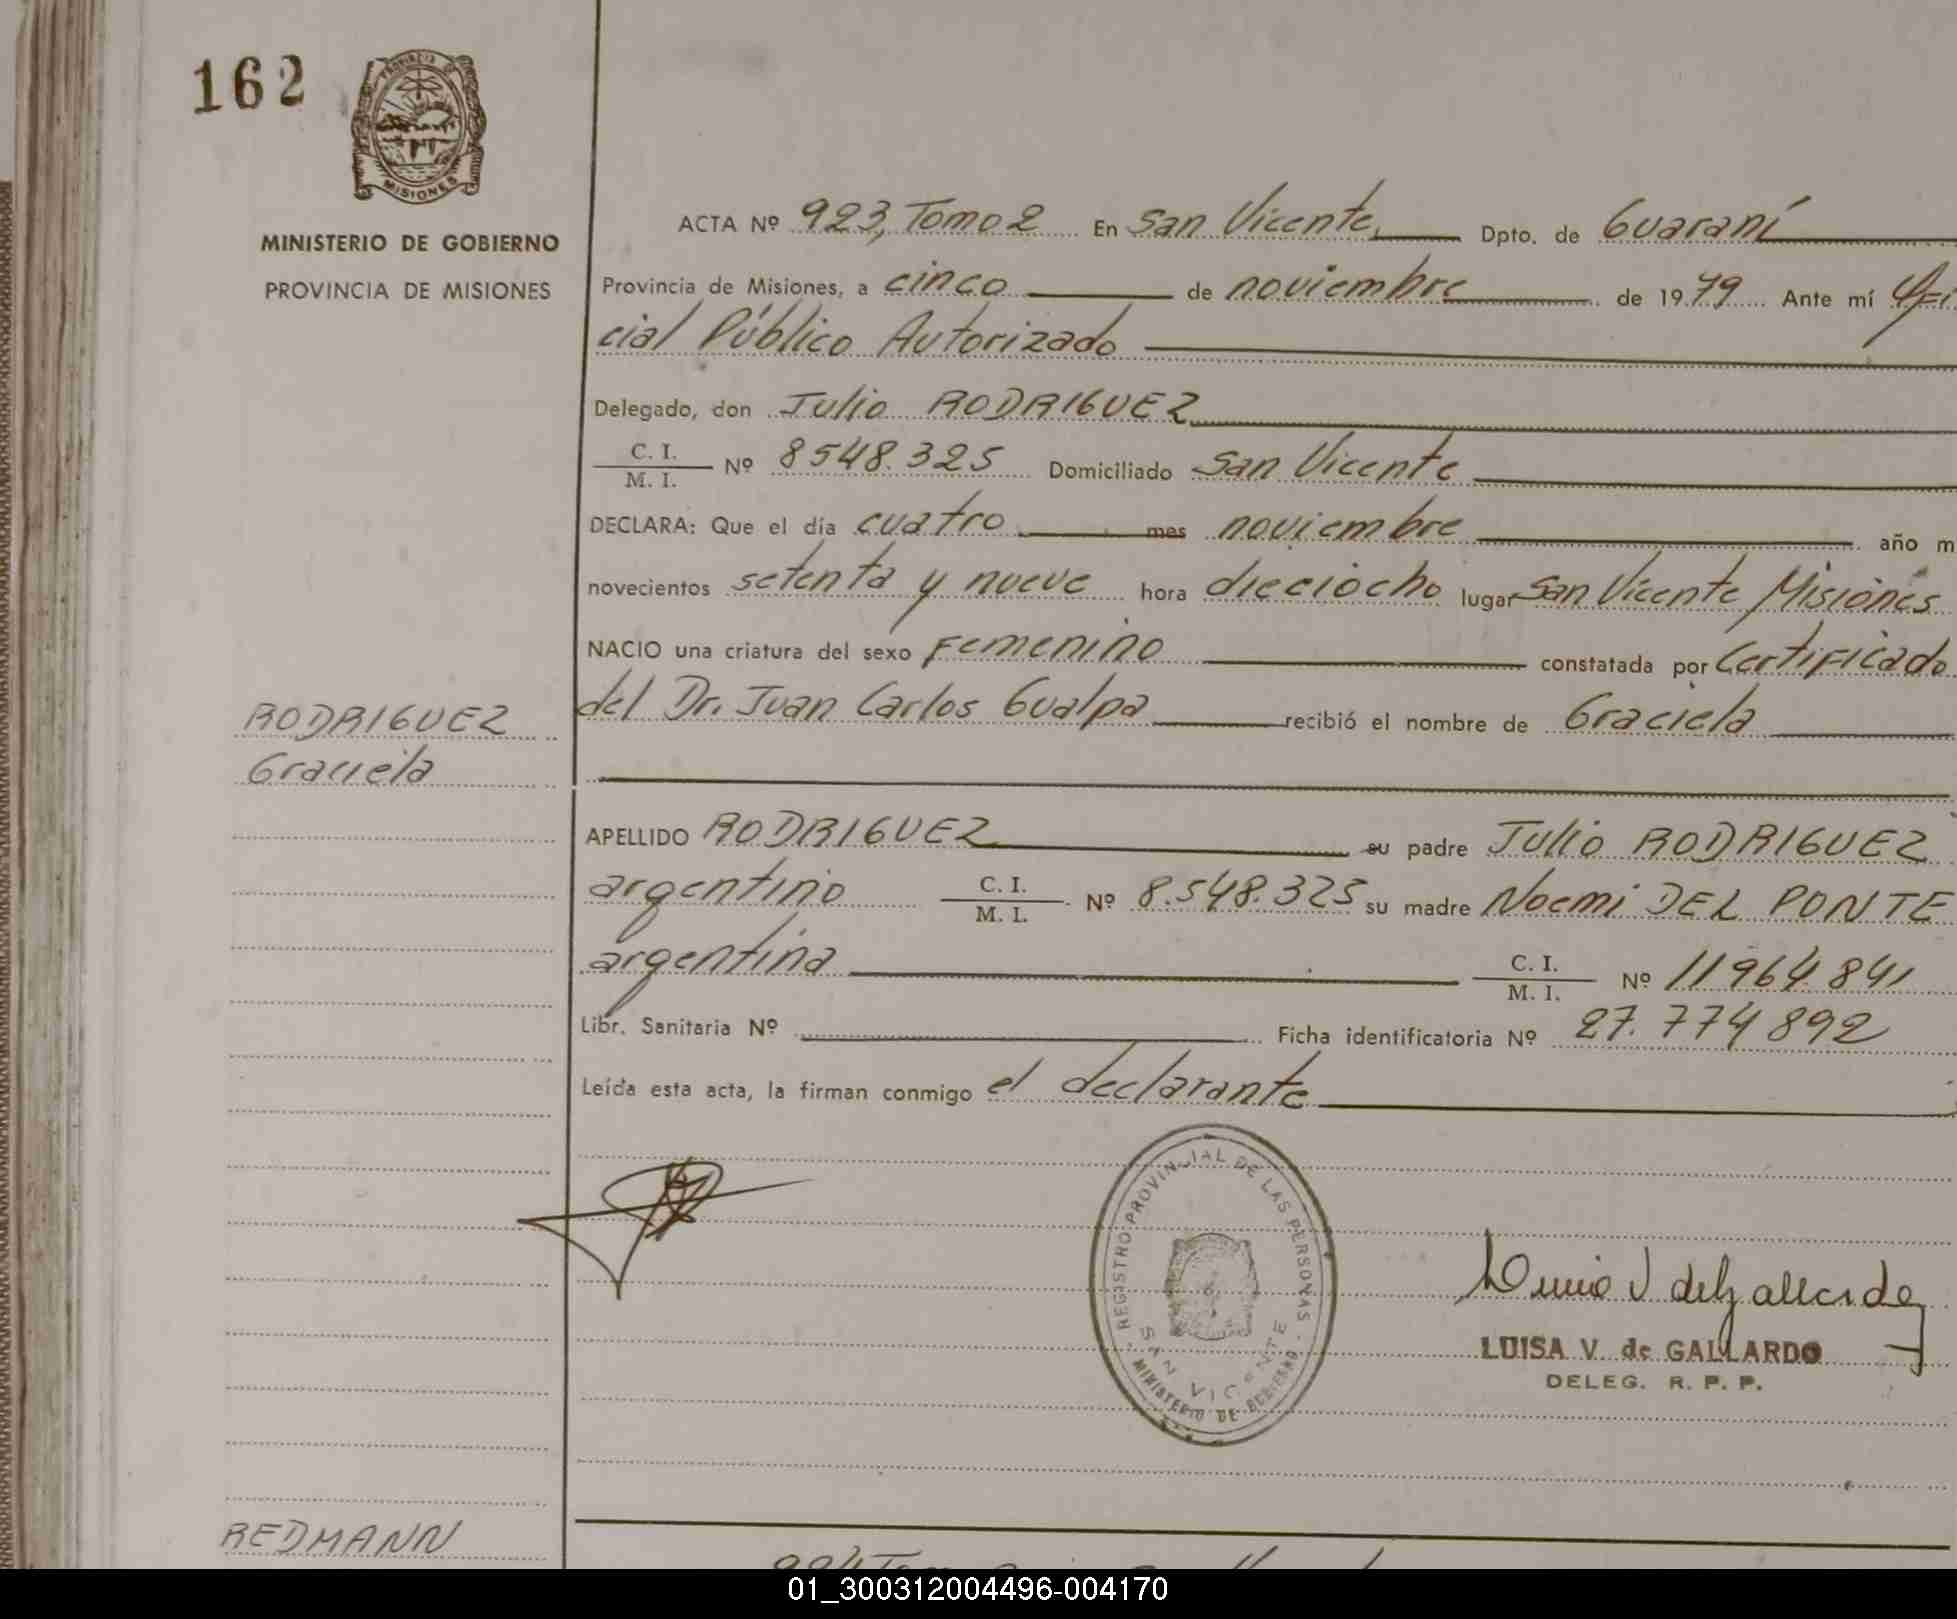 162
PROVINCIA DE
MISIONES
MINISTERIO DE GOBIERNO
PROVINCIA DE MISIONES
ACTA Nº 923, Tomo 2 En San Vicente, Dpto. de Guaraní
Provincia de Misiones, a cinco de noviembre de 1979 Ante mí Ofi
cial Público Autorizado
Delegado, don Julio RODRIGUEZ
C. I.
M. I. Nº 8548.325 Domiciliado San Vicente
DECLARA: Que el día cuatro mes noviembre año m
novecientos setenta y nueve hora dieciocho lugar San Vicente Misiones
NACIO una criatura del sexo Femenino constatada por Certificado
del Dr. Juan Carlos Gualpa recibió el nombre de Graciela
RODRIGUEZ
Graciela
APELLIDO RODRIGUEZ su padre Julio RODRIGUEZ
argentino C. I.
M. I. Nº 8.548.325 su madre Noemi DEL PONTE
argentina C. I.
M. I. Nº 11964.841
Libr. Sanitaria Nº Ficha identificatoria Nº 27.774892
Leída esta acta, la firman conmigo el declarante
REGISTRO PROVINCIAL DE LAS PERSONAS
SAN VICENTE
MINISTERIO DE GOBIERNO
LUISA V. de GALLARDO
DELEG. R. P. P.
REDMANN
01_300312004496-004170